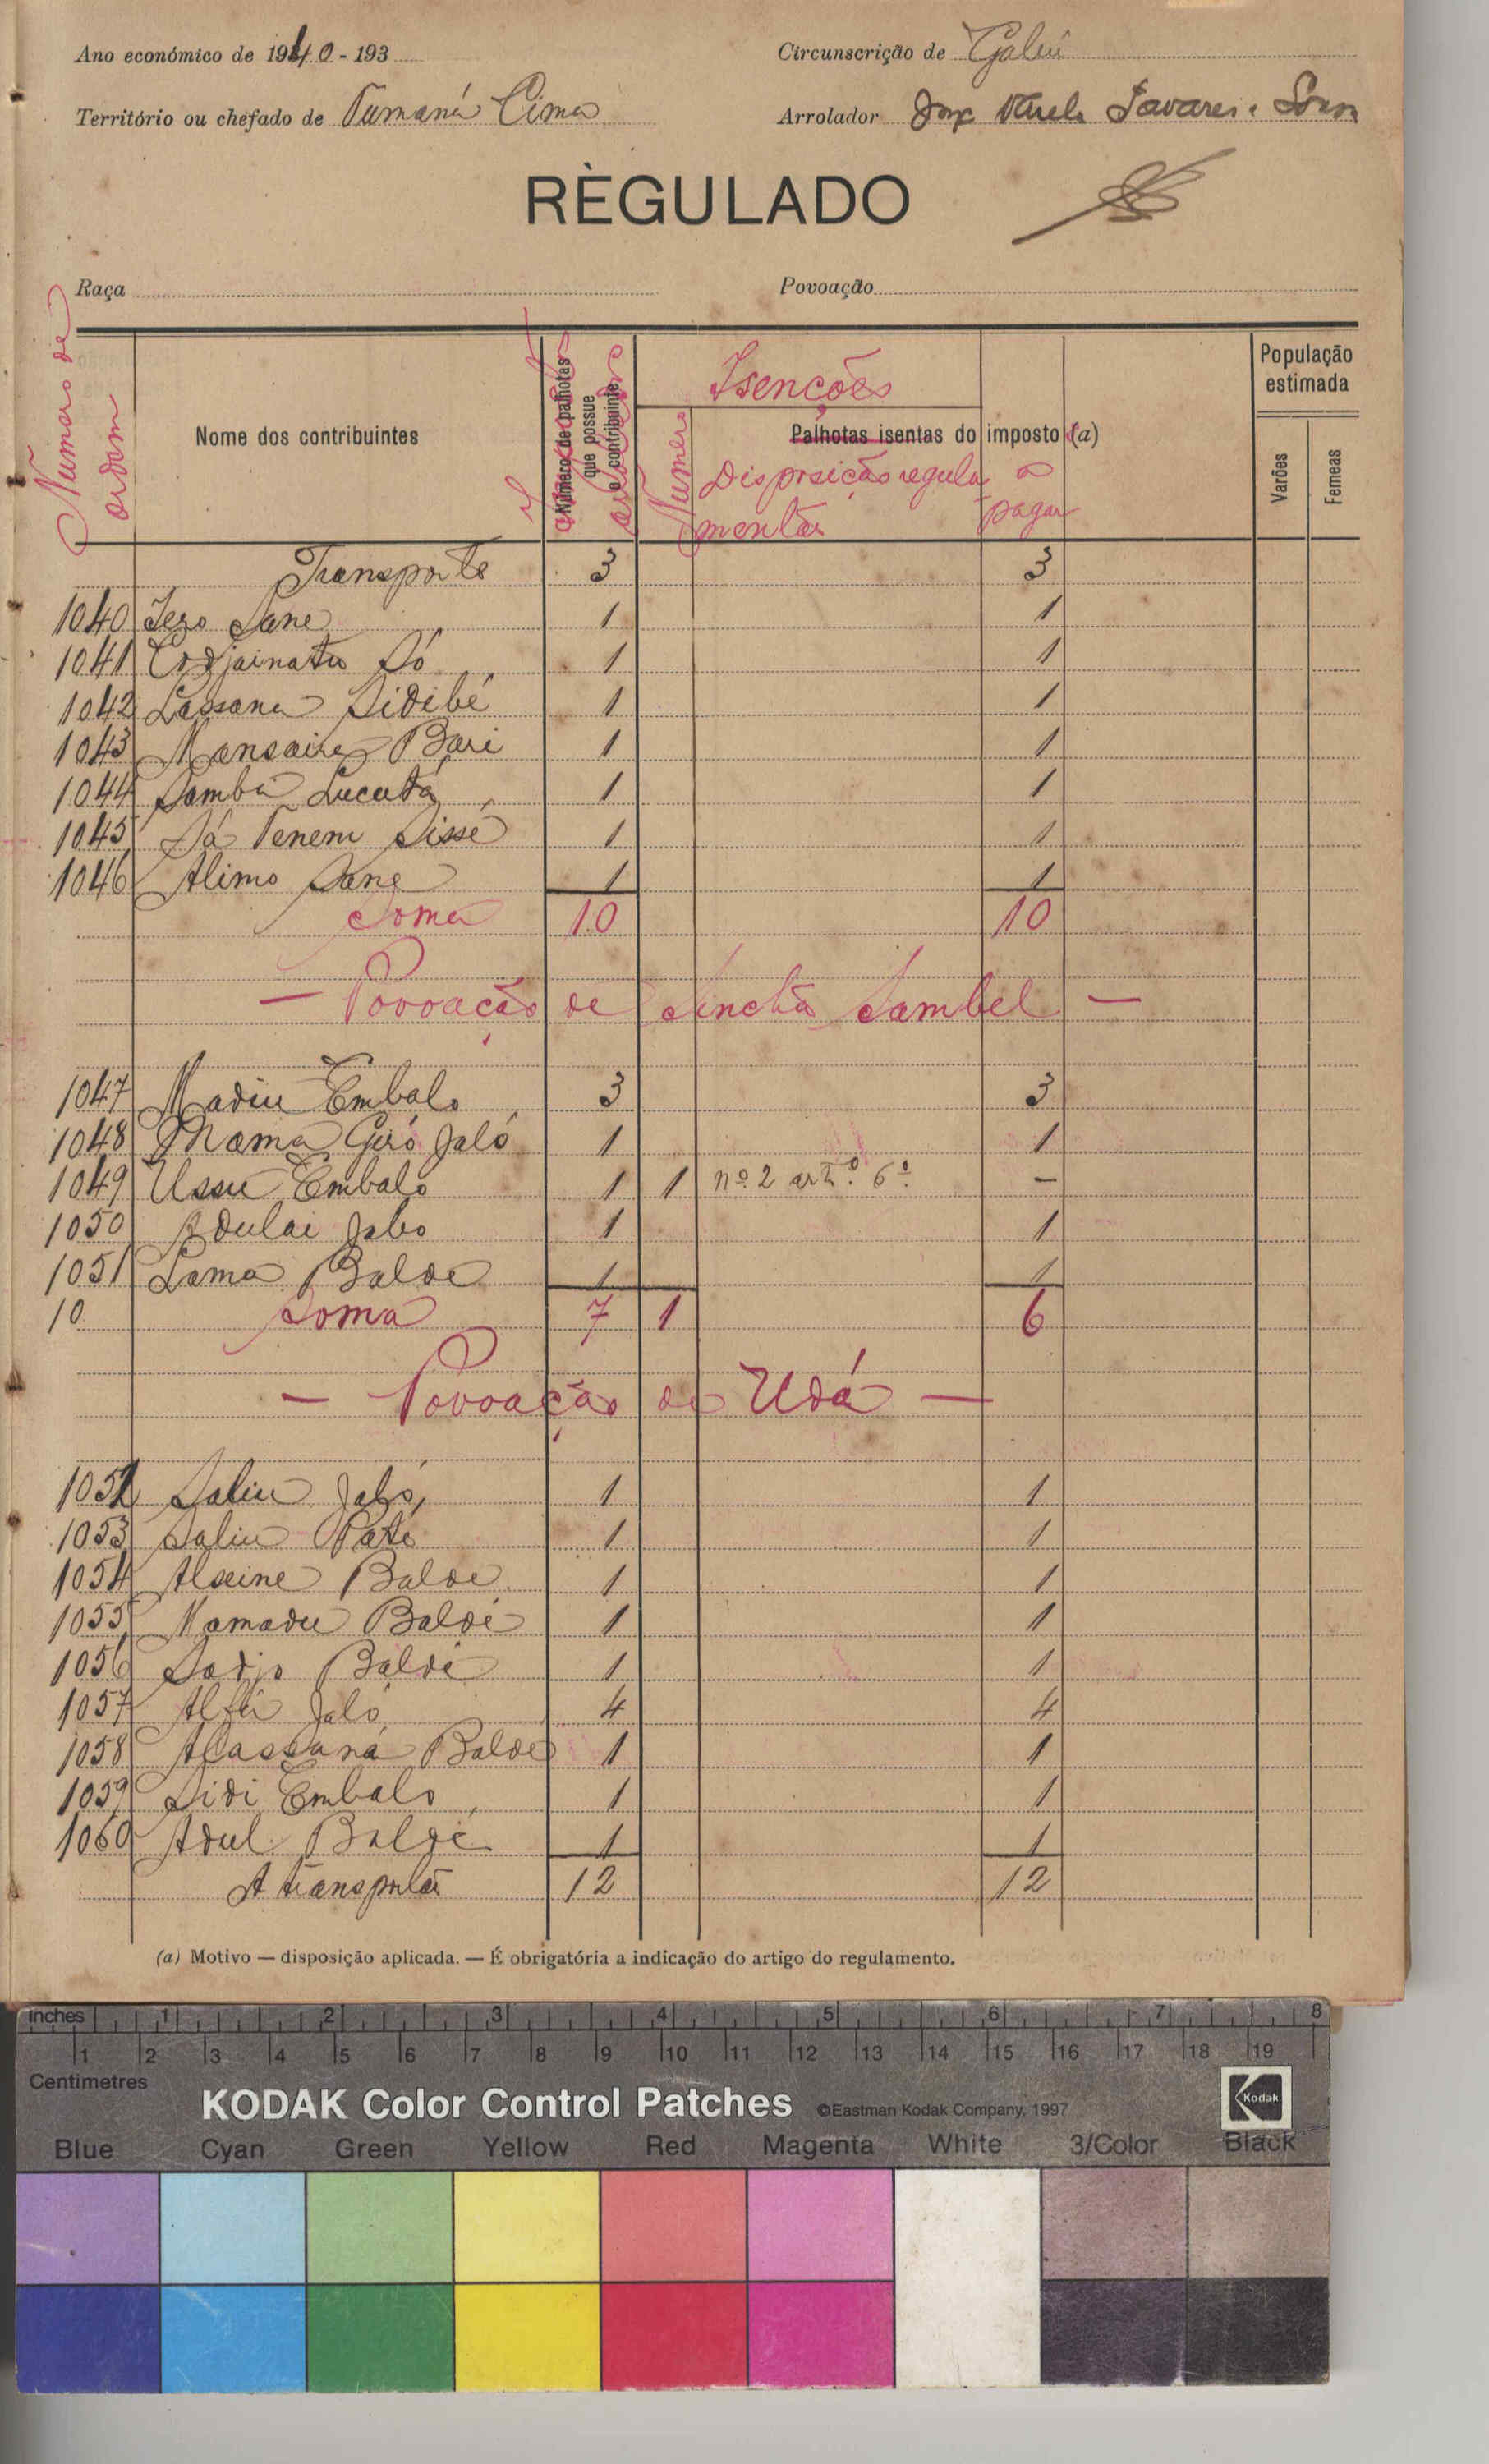 Ano económico de 1940 - 193
Circunscrição de Gabú
Território ou chefado de Tumaná Cima
Arrolador Tavares e Sousa
RÈGULADO
Raça
Povoação
Numero de ordem
Nome dos contribuintes
Número de palhotas que possue o contribuinte
Isenções
Numero
Palhotas isentas do imposto (a)
Disposição regulamentar
a pagar
População estimada
Varões
Femeas
Transporte 3 3
1040 Sane 1 1
1041 Só 1 1
1042 Lassana Sidibé 1 1
1043 Mansaine Bari 1 1
1044 Samba 1 1
1045 Sá Tenem Sissé 1 1
1046 Alimo Sane 1 1
Soma 10 10
— Povoação de Sinchã Sambel —
1047 Madiu Embalo 3 3
1048 Mama Jaló 1 1
1049 Ussu Embalo 1 1 nº 2 artº. 6º. -
1050 Adulai Jalo 1 1
1051 Lama Balde 1 1
10 Soma 7 1 6
— Povoação de Udá —
1052 Saliu Jaló 1 1
1053 Saliu Paté 1 1
1054 Alseine Balde 1 1
1055 Mamadu Baldé 1 1
1056 Sadjo Baldé 1 1
1057 Alfa Jaló 4 4
1058 Alassana Balde 1 1
1059 Sidi Embalo 1 1
1060 Adul Baldé 1 1
A transportar 12 12
(a) Motivo — disposição aplicada. — É obrigatória a indicação do artigo do regulamento.
inches 1 2 3 4 5 6 7 8
1 2 3 4 5 6 7 8 9 10 11 12 13 14 15 16 17 18 19
Centimetres
KODAK Color Control Patches ©Eastman Kodak Company, 1997 Kodak
Blue Cyan Green Yellow Red Magenta White 3/Color Black